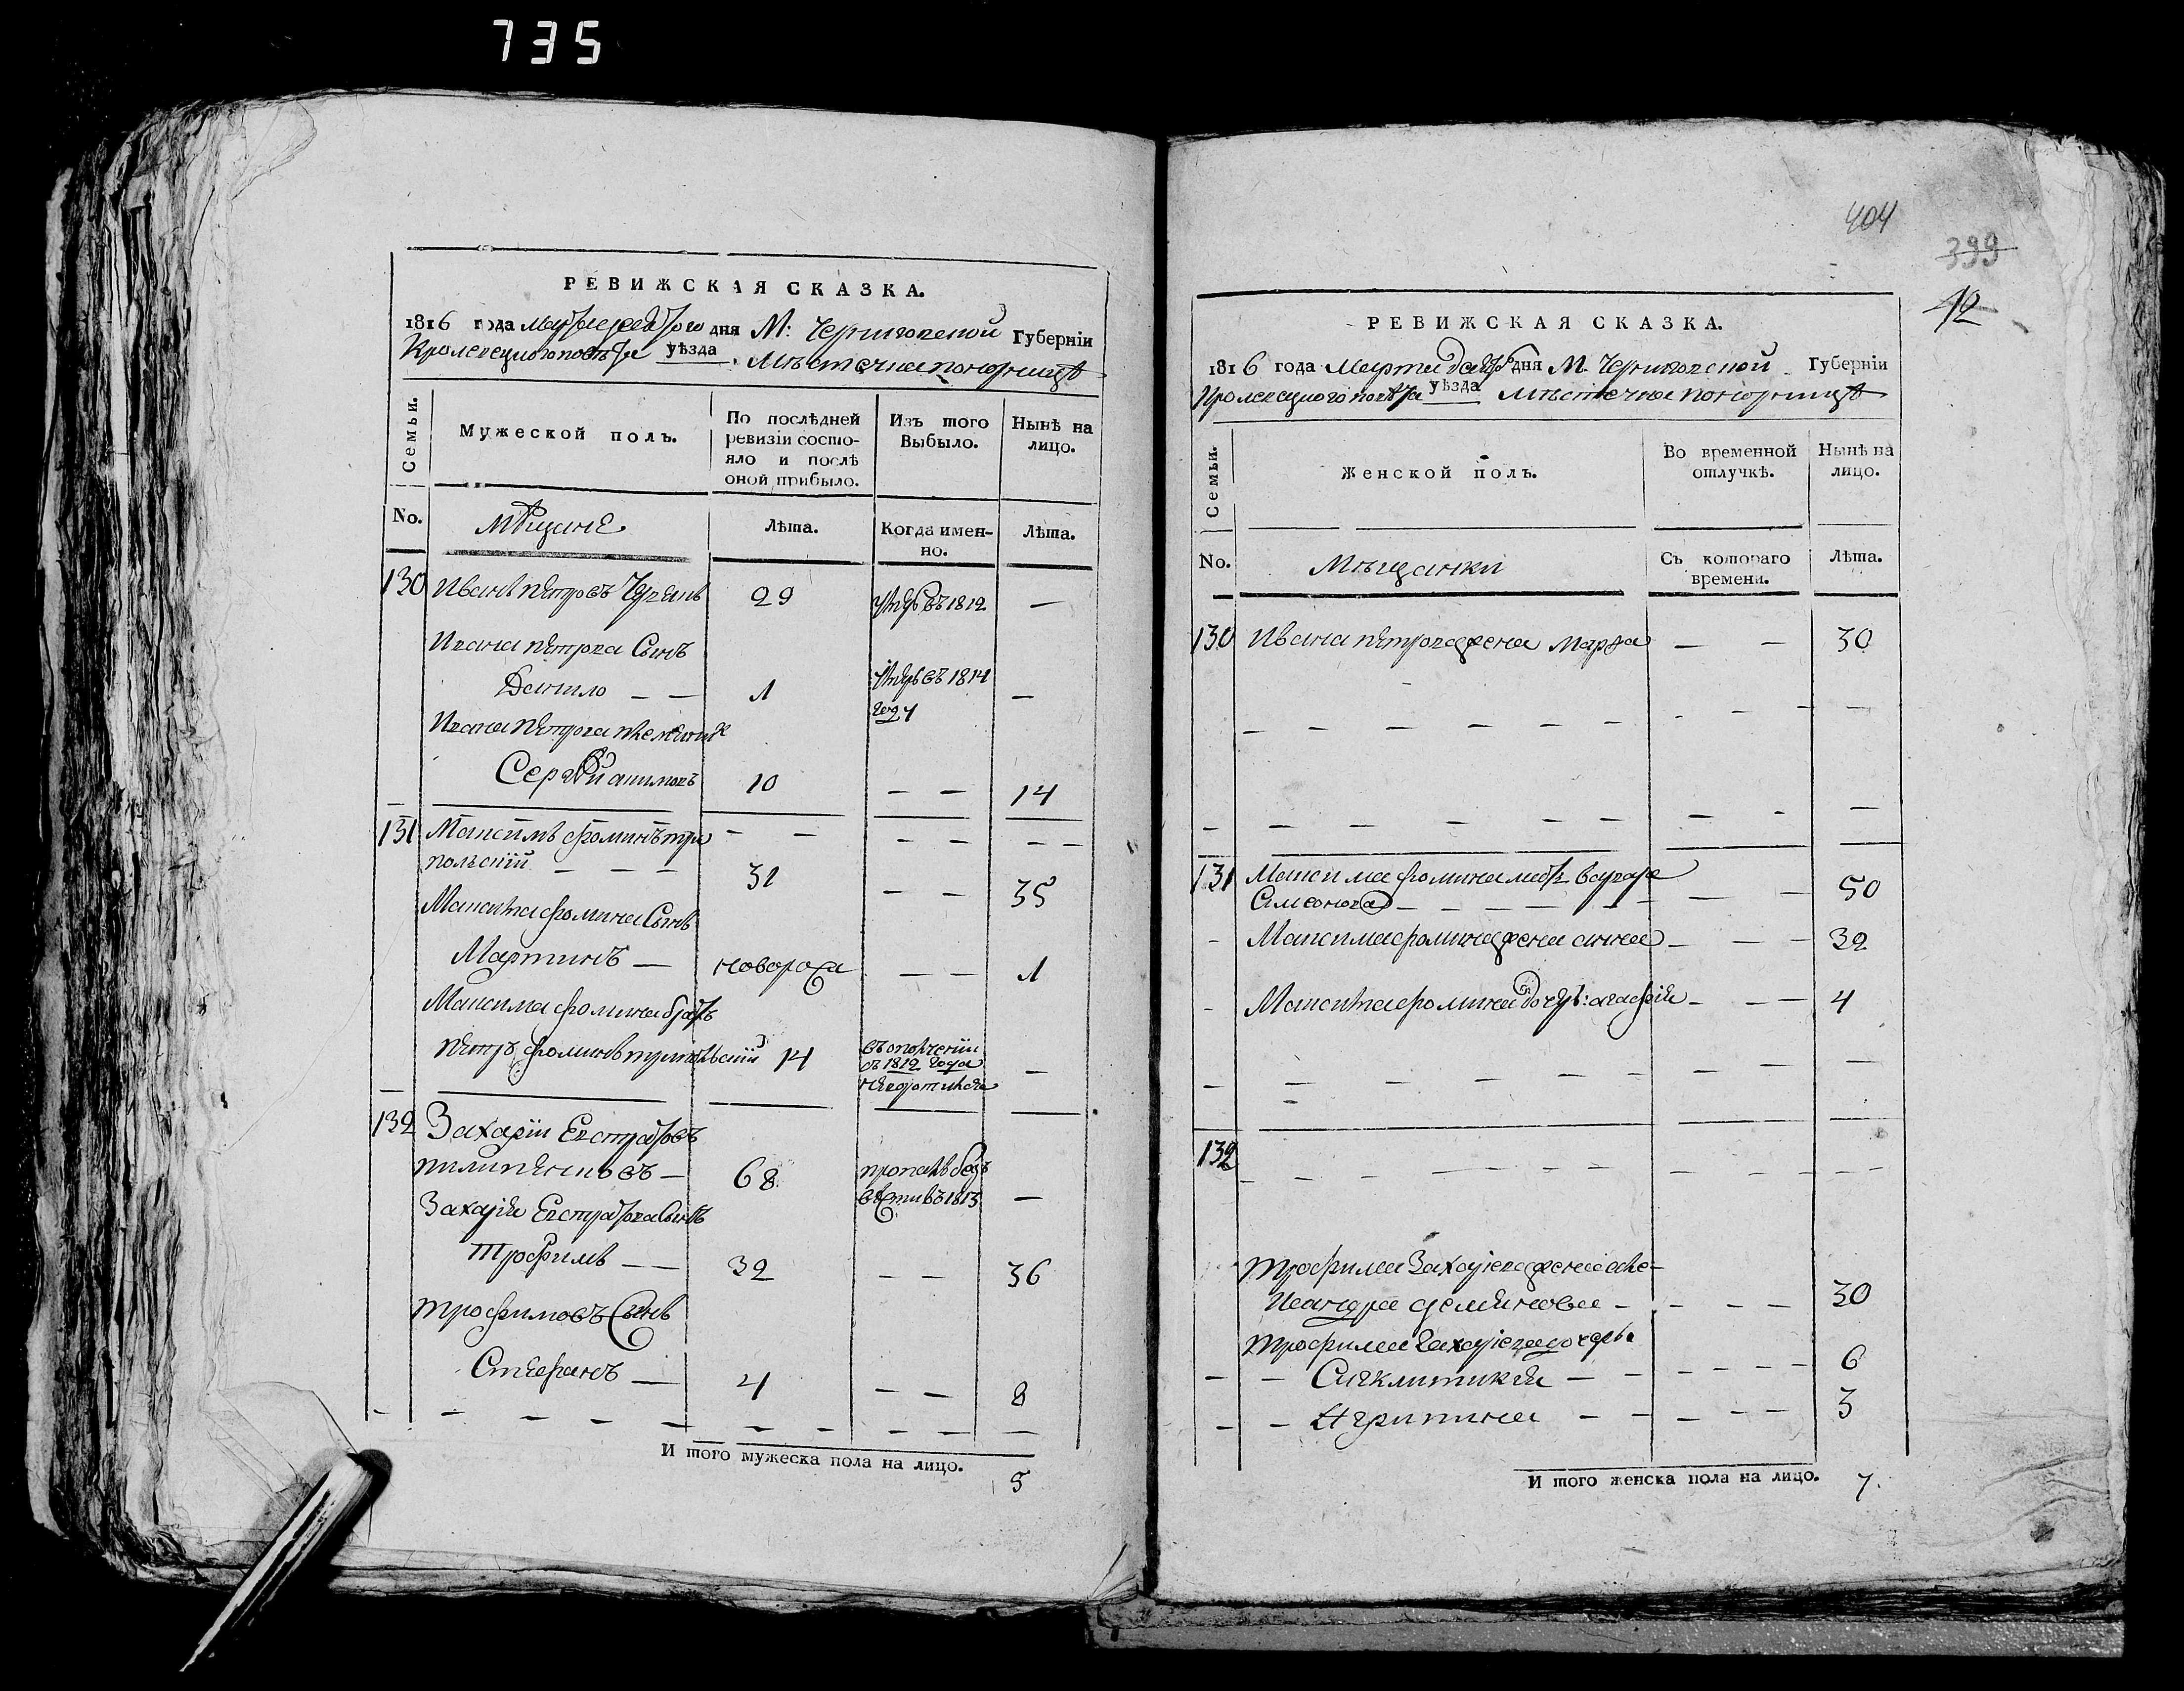 735
РЕВИЖСКАЯ СКАЗКА.
1816 года дня М: Черниговской Губерніи
Кролевецкого повѣта уѣзда Мѣстечка понорницѣ
Семьи.
Мужеской полъ.
По послѣдней ревизіи состо-
яло и послѣ оной прибыло.
Изъ того Выбыло.
Нынѣ на лицо.
No.
мѣщане
Лѣта.
Когда имен-
но.
Лѣта.
130 Иванъ петровъ 29 въ 1812 —
Ивана петрова Сынъ
Данило — — 1 въ 1814 году —
Ивана петрова племянникъ
Сергѣй акимовъ 10 — — 14
131 Максимъ фоминъ три
польскій — — — 31 — — 35
Максима фомина Сынъ
Мартинъ — новорож — — 1
Максима фомина братъ
петръ фоминъ трипольскій 14 въ ополченіи
съ 1812 года —
132 Захарій Евстратовъ
пилипенковъ — 68 пропалъ безъ
вѣсти въ 1813 —
Захарія Евстратова Сынъ
Трофимъ — — 32 — — 36
трофимовъ Сынъ
Стефанъ — 4 — — 8
И того мужеска пола на лицо. 5
404
399
12
РЕВИЖСКАЯ СКАЗКА.
1816 года Марта дня М. Черниговской Губерніи
Кролевецкого повѣта уѣзда мѣстечка понорницѣ
Семьи.
Женской полъ.
Во временной отлучкѣ.
Нынѣ на лицо.
No.
Мѣщанки
Съ котораго времени.
Лѣта.
130 Ивана петрова жена Марфа — — 30
131 Максима фомина мать варвара
Симонова — — 50
Максима фомина жена анна — — — 32
Максима фомина дочерь: агафія — — — 4
132
трофима Захарiева жена але-
ксандра демянова — — — 30
трофима Захарiева дочерь
Синклитикія — 6
Агрипина — 3
И того женска пола на лицо. 7.